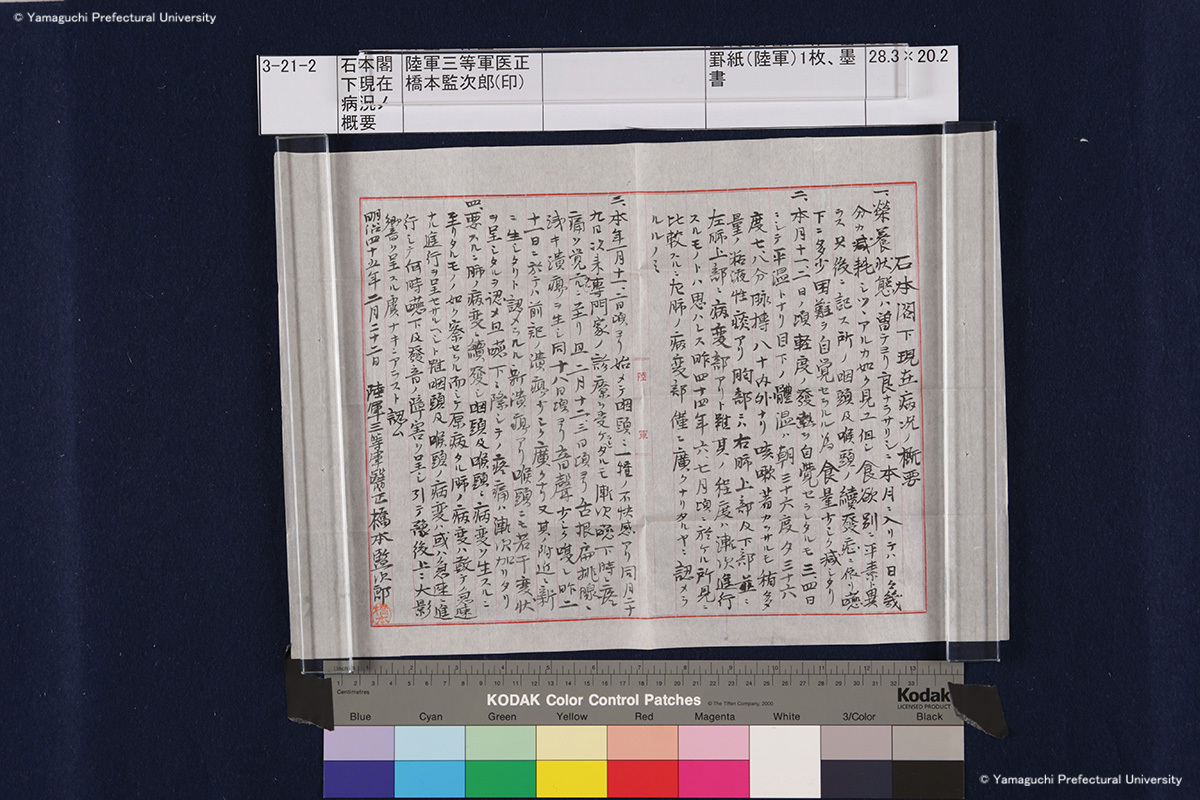 © Yamaguchi Prefectural University
3-21-2
石本閣
下現在
病況ノ
概要
陸軍三等軍医正
橋本監次郎(印)
罫紙(陸軍)1枚、墨
書
28.3×20.2
石本閣下現在病況ノ概要
一、榮養状態ハ曽テヨリ良ナラサリシニ本月ニ入リテハ日々幾
分カ減耗シツヽアルカ如ク見ユ但シ食欲別ニ平素ト異
ラス只後ニ記ス所ノ咽頭及喉頭ノ續發症ニ依リ嚥
下ニ多少困難ヲ自覚セラルヽ為食量少シク減シタリ
二、本月十一、二日ノ頃軽度ノ發熱ヲ自覚セラレタルモ三、四日
ニシテ平温トナリ目下ノ體温ハ朝三十六度夕三十六
度七、八分脉搏八十内外ナリ咳嗽著カラサルモ稍多
量ノ粘液性痰アリ胸部ニハ右肺上部及下部並ニ
左肺上部ニ病変部アリト雖其ノ程度ハ漸次進行
スルモノトハ思ハレス昨四十四年六、七月頃ニ於ケル所見ニ
比較スルニ左肺ノ病変部僅ニ廣クナリタルヤニ認メラ
ルルノミ
三、本年一月十一、二日頃ヨリ始メテ咽頭ニ一種ノ不快感アリ同月二十
九日以来専門家ノ診療ヲ受ケタルモ漸次嚥下時ニ疼
痛ヲ覚ユルニ至リ且二月十二、三日頃ヨリ舌根扁桃腺ニ
浅キ潰瘍ヲ生シ同十八日頃ヨリ音聲少シク嗄レ昨二
十一日ニ於テハ前記ノ潰瘍少シク廣クナリ又其ノ附近ニ新
ニ生シタリト認メラルル新潰瘍アリ喉頭ニモ若干変状
ヲ呈シタルヲ認メ且嚥下ニ際シテノ疼痛ハ漸次加ハリタリ
四、要スルニ肺ノ病変ニ續發シ咽頭及喉頭ニ病変ヲ生スルニ
至リタルモノノ如ク察セラル而シテ原病タル肺ノ病変ハ敢テ急速
ナル進行ヲ呈セサルヘシト雖咽頭及喉頭ノ病変ハ或ハ急速ニ進
行シテ何時嚥下及發音ノ障害ヲ呈シ引テ豫後上ニ大影
響ヲ呈スル虞ナキニアラスト認ム
明治四十五年二月二十二日 陸軍三等軍醫正橋本監次郎
陸軍
KODAK Color Control Patches
© The Tiffen Company, 2000
Kodak
LICENSED PRODUCT
Centimetres
Blue Cyan Green Yellow Red Magenta White 3/Color Black
© Yamaguchi Prefectural University